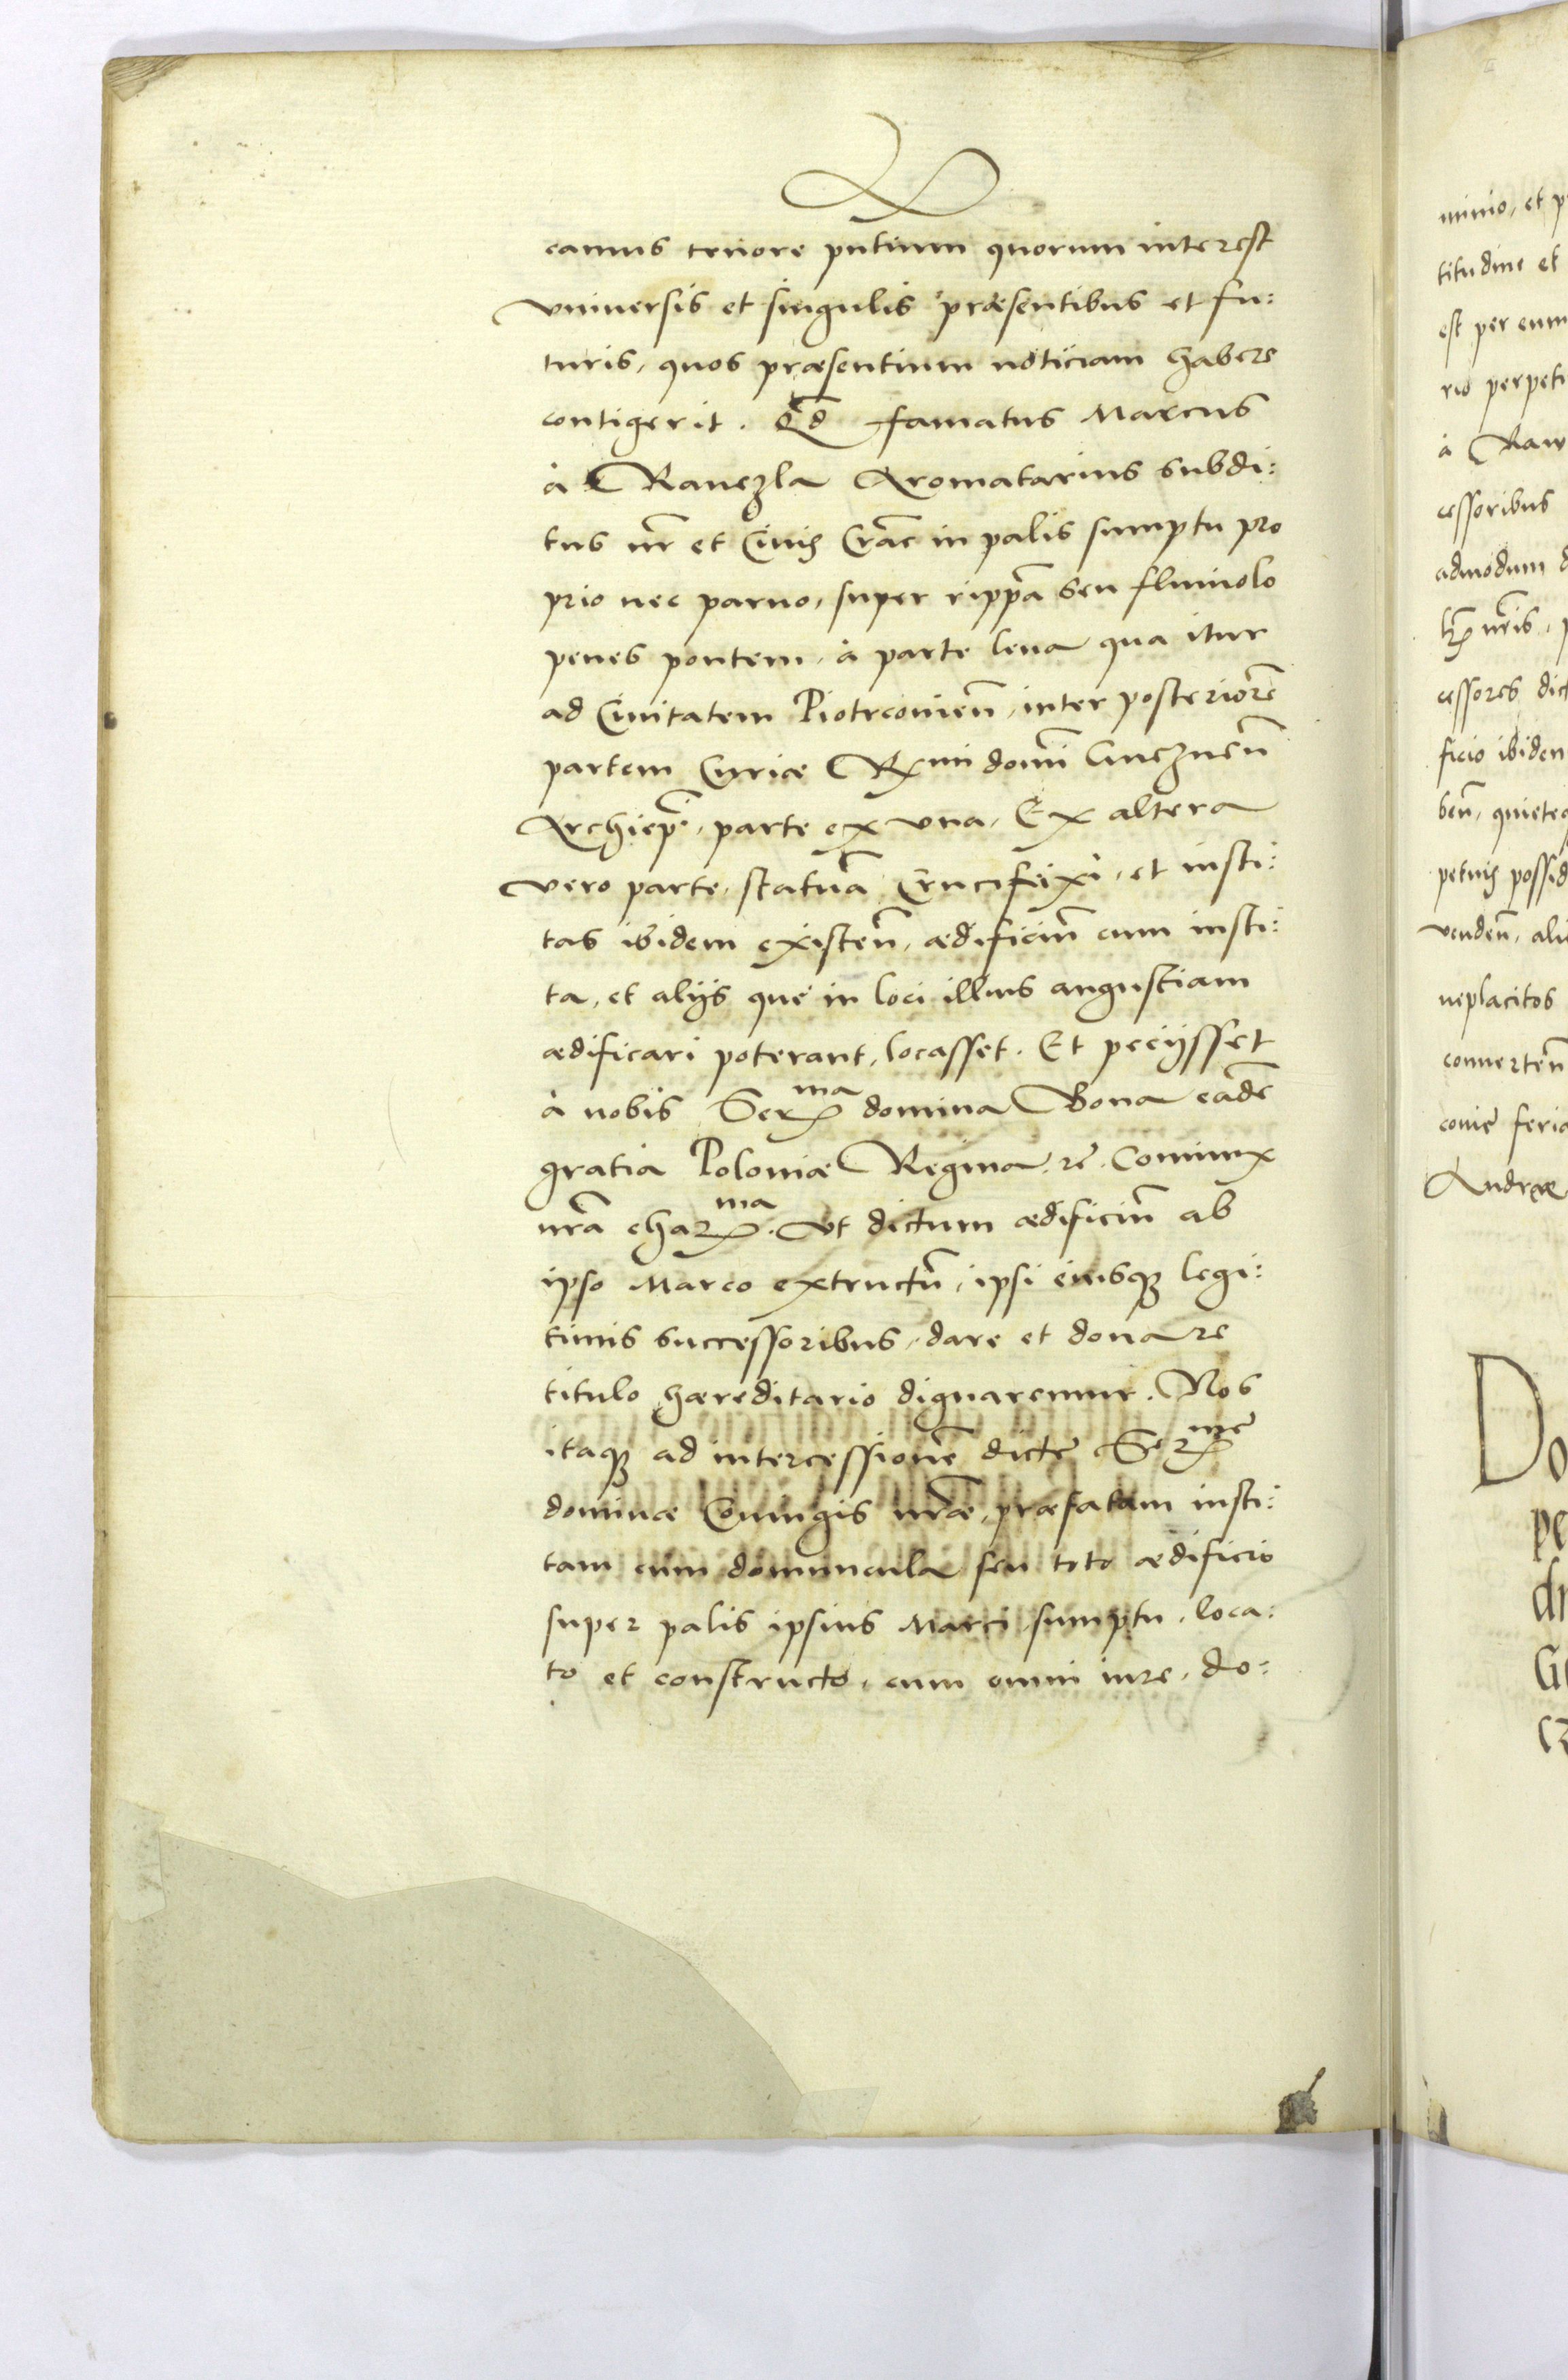 camus tenore pñtium quorum interest
vniuersis et singulis præsentibus et fu:
turis, quos præsentium noticiam habere
contigerit. Qđ famatus Marcus
à Rauczla Aromatarius subdi:
tus nr̃ et Ciuis Crac̃ in palis sumptu pro
prio nec paruo, super rippã seu fluuiolo
penes pontem, à parte leua qua itur
ad Ciuitatem Piotrcouieñ, inter posteriorẽ
partem Curiæ Rx̃mi domĩ Gnezneñ
Archiep̃i, parte ex vna, Ex altera
vero parte, statuã Crucifixi, et insti:
tas ibidem existeñ, ædificiũ cum insti:
ta, et alijs que in loci illius angustiam
ædificari poterant, locasset. Et peciisset
à nobis Serma domina Bona eadẽ
gratia Poloniæ Regina, rẽ. Coniunx
nrã charma. Vt dictum ædificiũ ab
ipso Marco extructũ, ipsi eiusq legi:
timis successoribus, dare et donare
titulo hæreditario dignaremur. Nos
itaq ad intercessionẽ dicte Serme
dominæ Coniugis nrãe, præfatam insti:
tam cum domuncula seu toto ædificio
super palis ipsius Marci sumptu, loca:
to et constructo, cum omni iure, do:
minio, et p
titudine et
est per eum
rio perpet
à Raw
cessoribus
admodum d
nr̃is,
cessores dict
ficio ibidem
beñ, quiete
petuis possid
vendeñ, ali
neplacitos
conuerteñ
couiẽ feria
Andreæ
Do
pe
di
G
cz